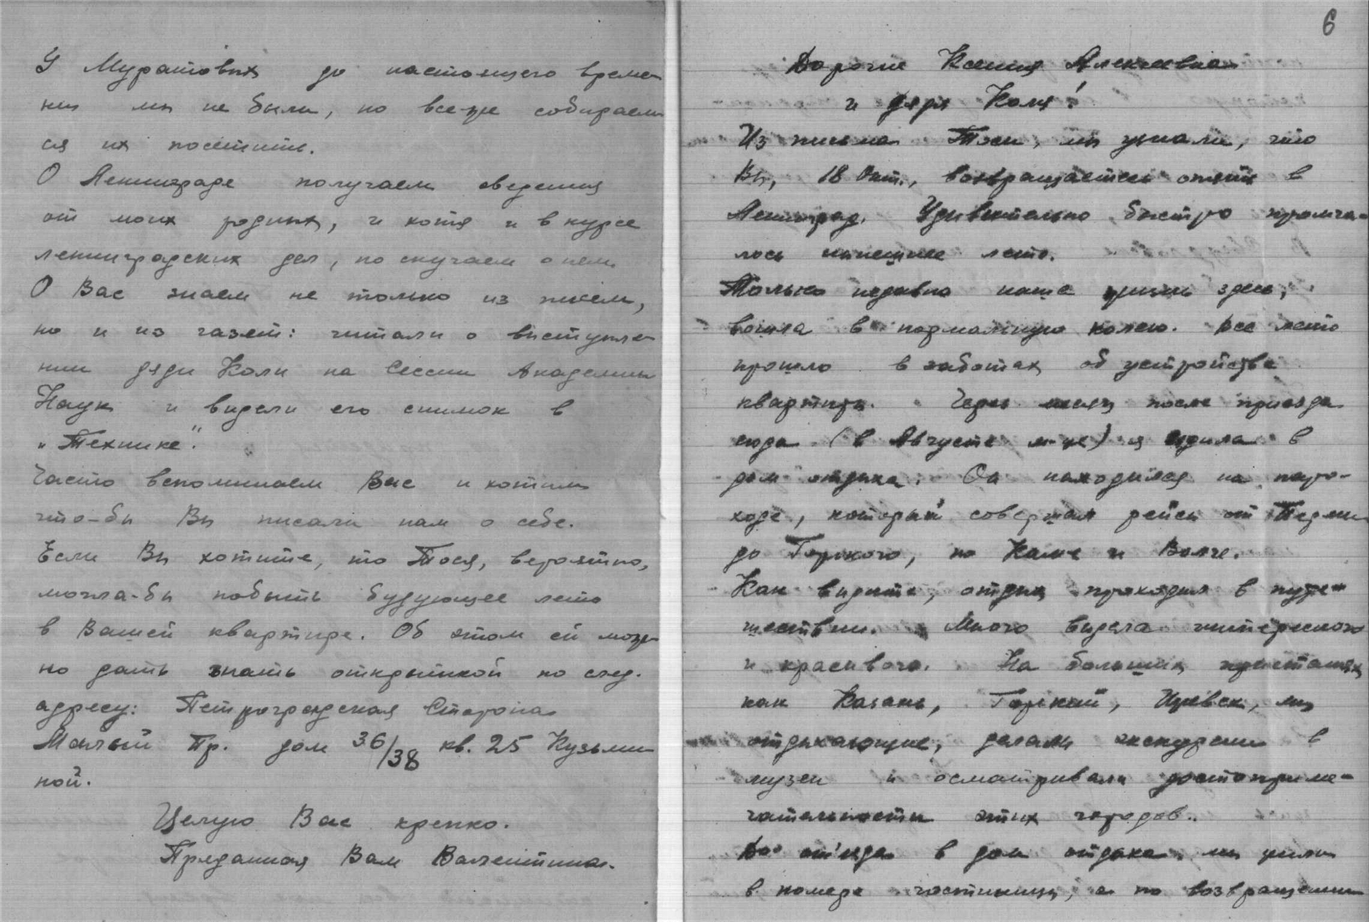 6
Дорогие Ксения Алексеевна
и дядя Коля!
Из письма Тоси, мы узнали, что
Вы, 18 Окт., возвращаетесь опять в
Ленинград. Удивительно, быстро промча-
лось нынешнее лето.
Только недавно наша жизнь здесь,
вошла в нормальную колею. Все лето
прошло в заботах об устройстве
квартиры. Через месяц после приезда
сюда (в Августе м-це) я ездила в
дом отдыха. Он находился на паро-
ходе, который совершал рейсы от Перми
до Горького, по Каме и Волге.
Как видите, отдых проходил в путе-
шествии. Много видела интересного
и красивого. На больших пристанях
как Казань, Горький, Ижевск, мы
отдыхающие, делали экскурсии в
музеи и осматривали достоприме-
чательности этих городов.
До от'езда в дом отдыха, мы жили
в номере гостиницы, а по возвращении
У Муратовых до настоящего време-
ни мы не были, но все-же собираем-
ся их посетить.
О Ленинграде получаем сведения
от моих родных, и хотя и в курсе
ленинградских дел, но скучаем о нем.
О Вас знаем не только из писем,
но и из газет: читали о выступле-
нии дяди Коли на Сессии Академии
Наук и видели его снимок в
„Технике".
Часто вспоминаем Вас и хотим
что-бы Вы писали нам о себе.
Если Вы хотите, то Тося, вероятно,
могла-бы побыть будующее лето
в Вашей квартире. Об этом ей мож-
но дать знать открыткой по след.
адресу: Петроградская Сторона
Малый Пр. дом 36/38 кв. 25 Кузьми-
ной.
Целую Вас крепко.
Преданная Вам Валентина.